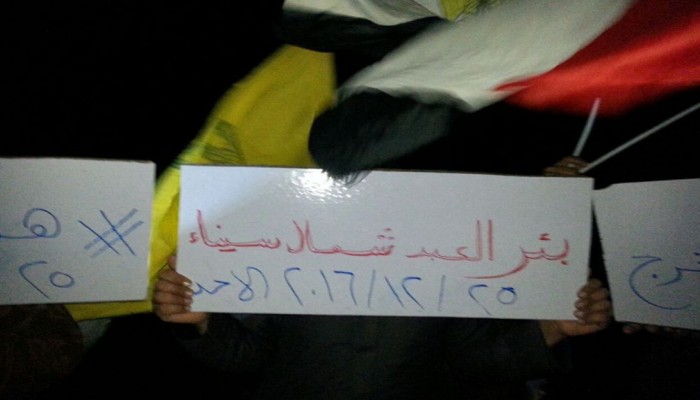 بئر العبد شمال سيناء
٢٠١٦/١٢/٢٥ الاحد
#
٢٥